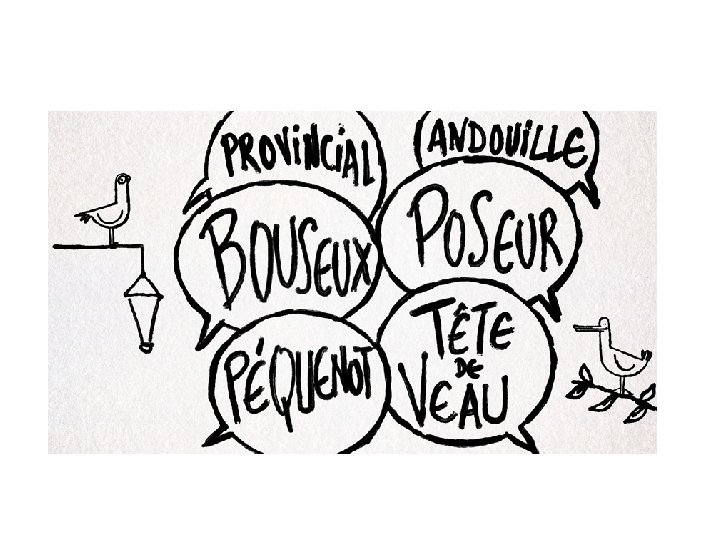 PROVINCIAL
BOUSEUX
PÉQUENOT
ANDOUILLE
POSEUR
TÊTE
DE
VEAU